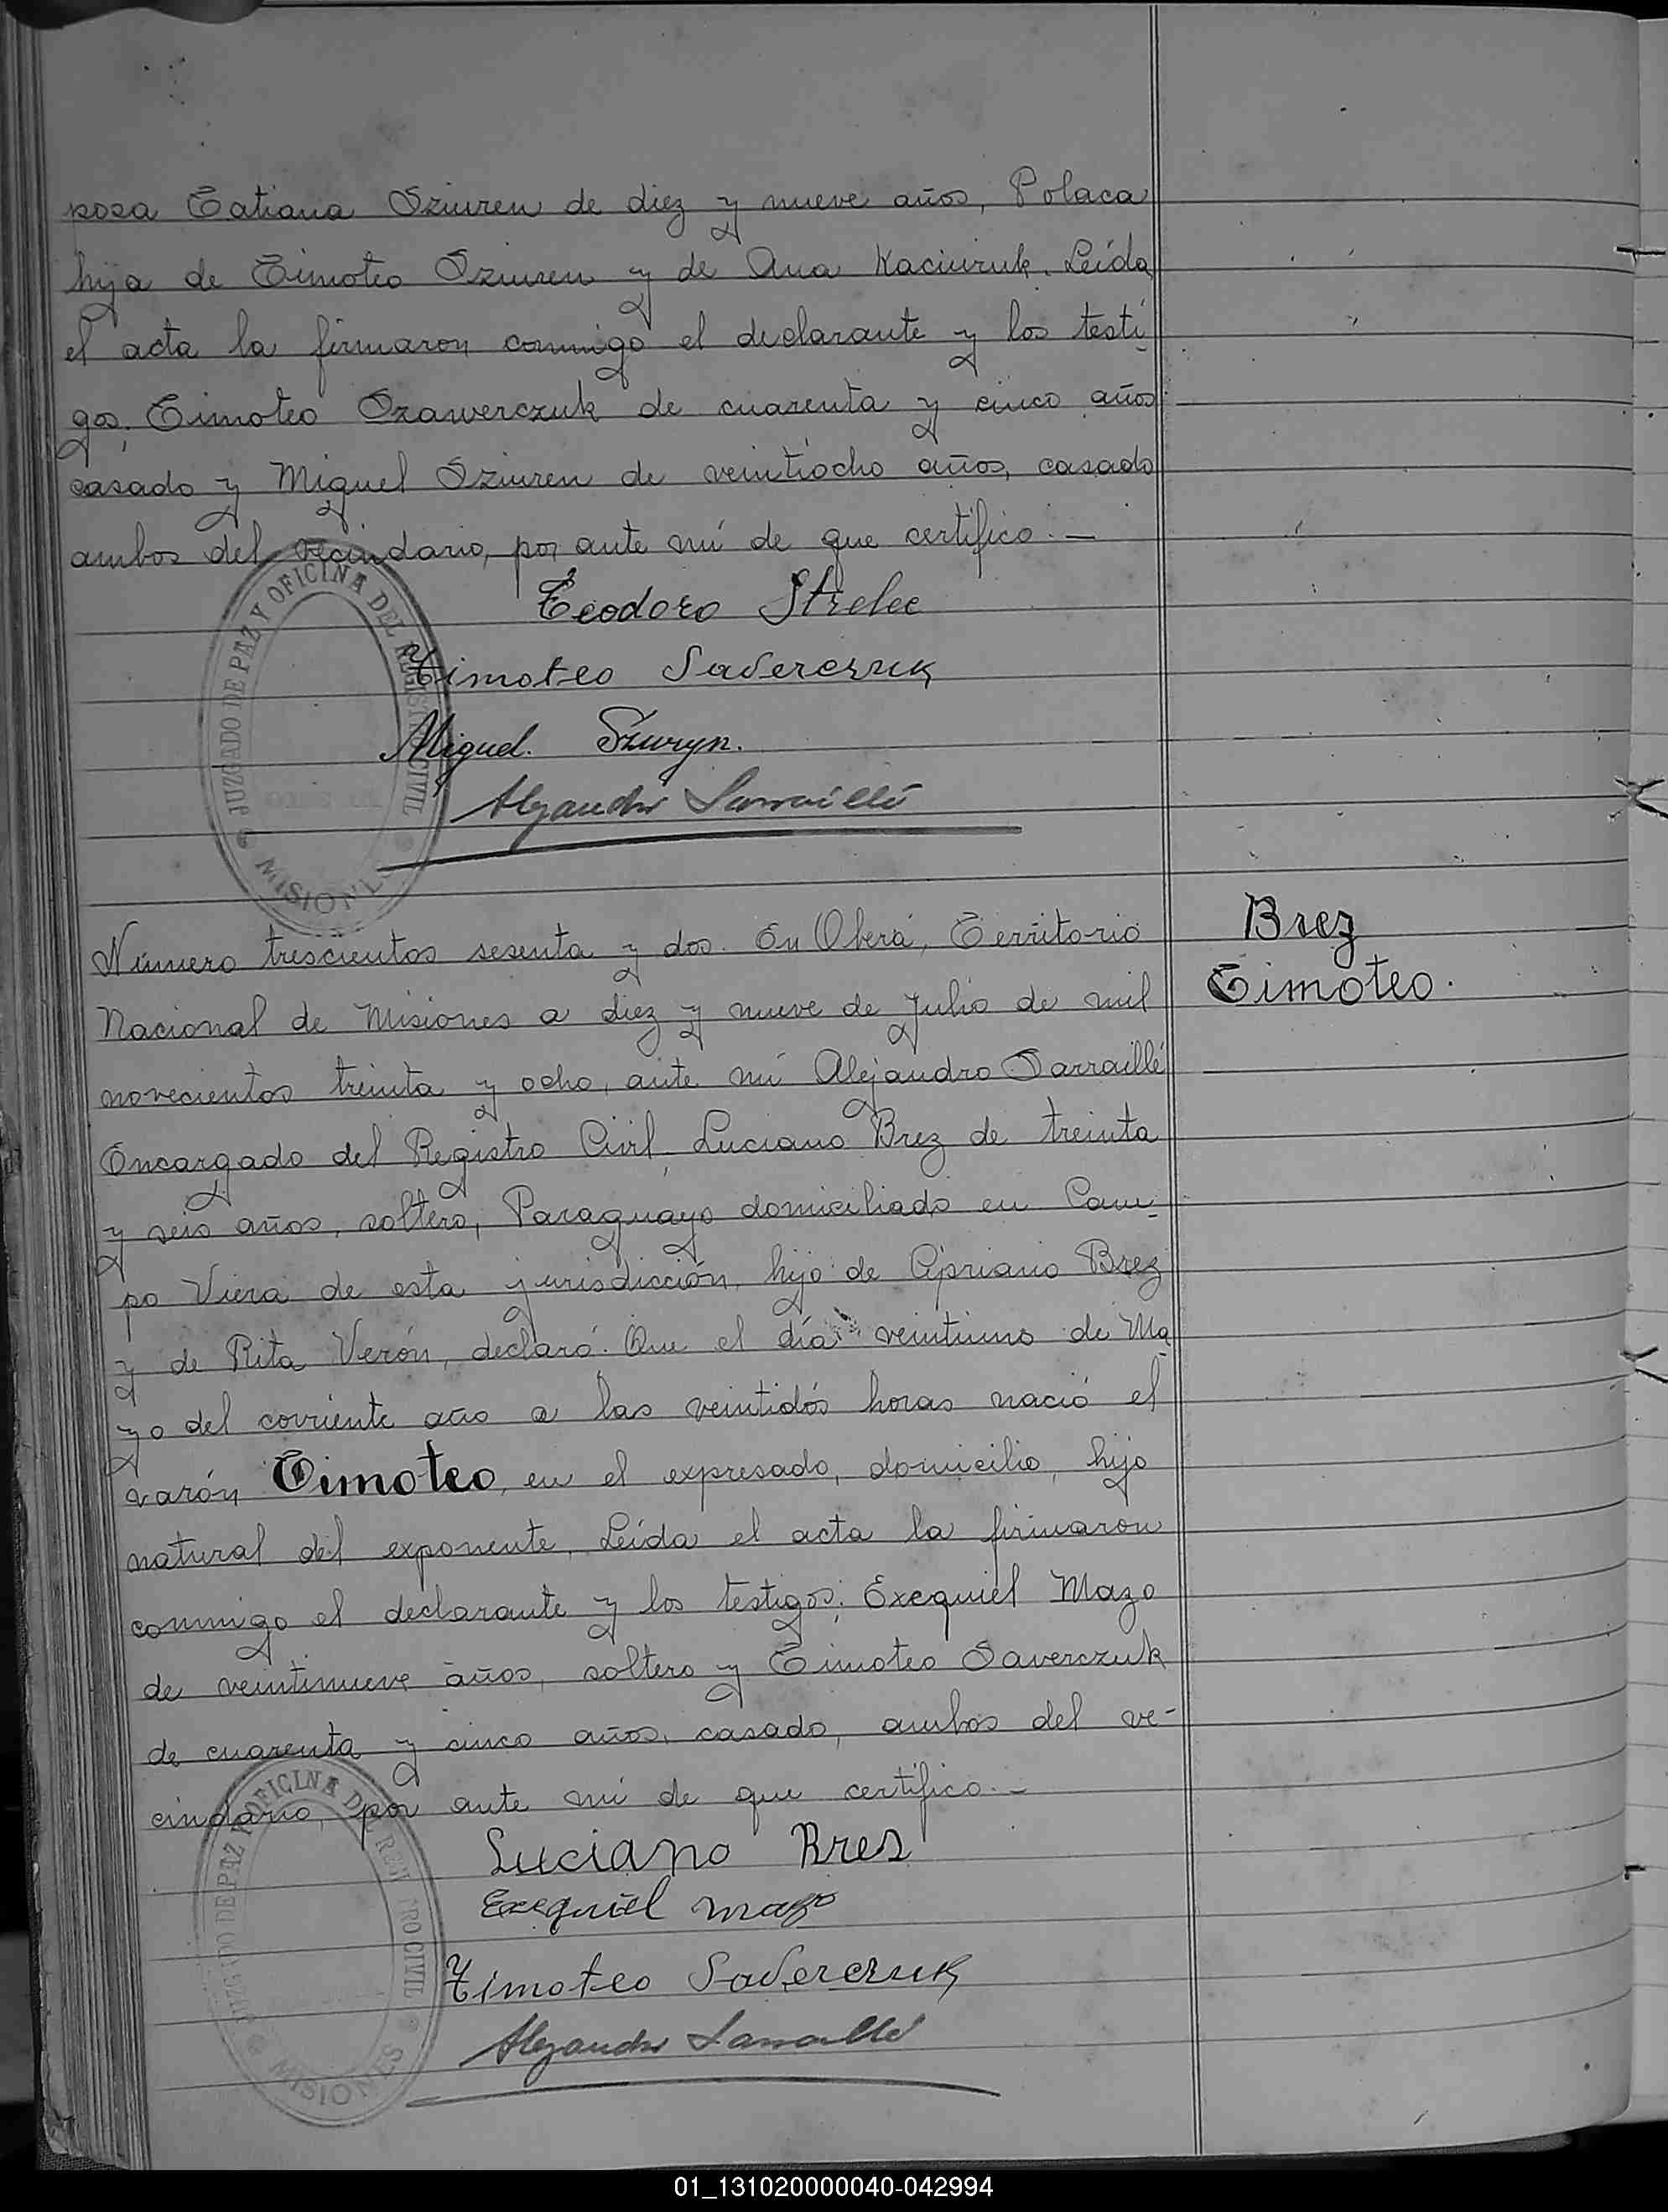 posa Tatiana Sziuren de diez y nueve años, Polaca
hija de Timoteo Sziuren y de Ana Kaciuruk. Leída
el acta la firmaron conmigo el declarante y los testi
gos, Timoteo Szawerczuk de cuarenta y cinco años
casado y Miguel Sziuren de veintiocho años, casado
ambos del vecindario, por ante mí de que certifico.—
Teodoro Strelec
Timoteo Saverczuk
Miguel. Szuryn.
Alejandro Sarraillé
JUZGADO DE PAZ Y OFICINA DEL REGISTRO CIVIL
MISIONES
Número trescientos sesenta y dos. En Oberá, Territorio
Nacional de Misiones a diez y nueve de Julio de mil
novecientos treinta y ocho, ante mí Alejandro Sarraillé
Encargado del Registro Civil, Luciano Brez de treinta
y seis años, soltero, Paraguayo domiciliado en Cam-
po Viera de esta jurisdicción, hijo de Cipriano Brez
y de Rita Verón, declaró: Que el día veintiuno de Ma
yo del corriente año a las veintidós horas nació el
varón Timoteo, en el expresado, domicilio, hijo
natural del exponente, Leída el acta la firmaron
conmigo el declarante y los testigos; Exequiel Mazo
de veintinueve años, soltero y Timoteo Saverczuk
de cuarenta y cinco años, casado, ambos del ve-
cindario, por ante mí de que certifico.—
Brez
Timoteo.
Luciano Bres
Exequiel Mazo
Timoteo Saverczuk
Alejandro Sarraillé
JUZGADO DE PAZ Y OFICINA DEL REGISTRO CIVIL
MISIONES
01_131020000040-042994